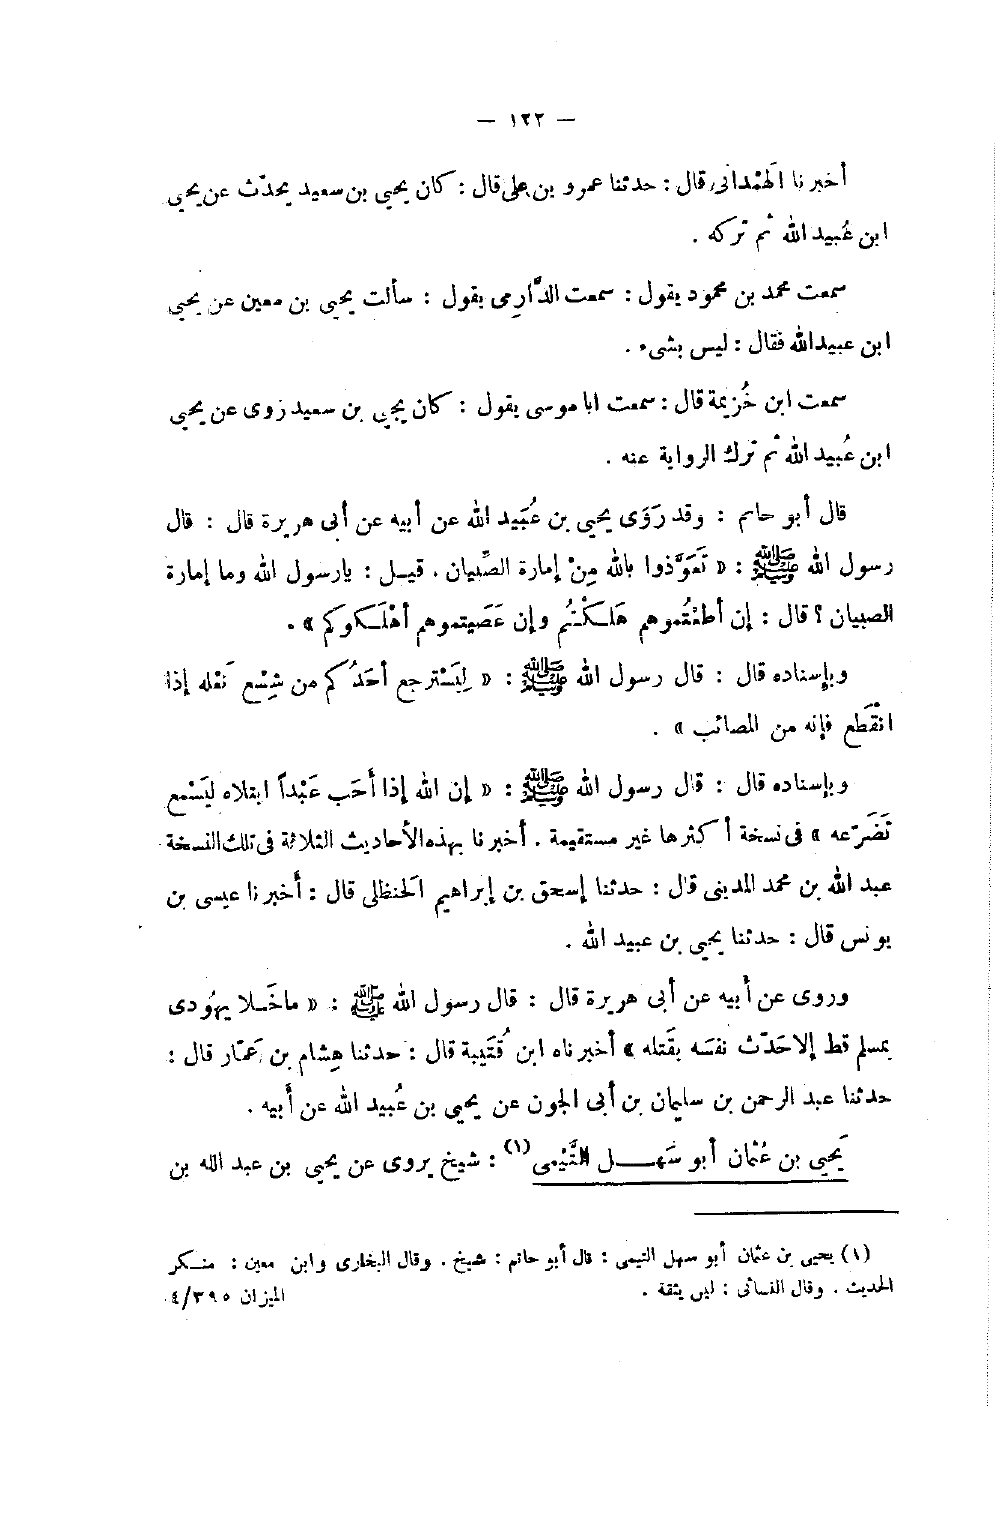 — ١٢٢ —
أخبرنا الهَمْدانى قال : حدثنا عمرو بن على قال : كان يحيى بن سعيد يحدّث عن يحيى
ابن عُبيد الله ثم تركه .
سمعت محمد بن محمود يقول : سمعت الدَّارِمى يقول : سألت يحيى بن معين عن يحيى
ابن عبيدالله فقال : ليس بشىء .
سمعت ابن خُزيمة قال : سمعت ابا موسى يقول : كان يحيى بن سعيد روى عن يحيى
ابن عُبيد الله ثم ترك الرواية عنه .
قال أبو حاتم : وقد رَوَى يحيى بن عُبَيد الله عن أبيه عن أبى هريرة قال : قال
رسول الله ﷺ : « تَعَوَّذوا بالله مِنْ إمارة الصِّبيان . قيــل : يارسول الله وما إمارة
الصبيان ؟ قال : إن أطَعْتُموهم هَلَـكْتُم وإن عَصَيتموهم أهْلَـكوكم » .
وبإسناده قال : قال رسول الله ﷺ : « لِيَسْترجع أحَدُكم من شِسْع نَعْله إذا
انْقَطع فإنه من المصائب » .
وبإسناده قال : قال رسول الله ﷺ : « إن الله إذا أحَب عَبْداً ابتلاه ليَسْمع
تَضَرّعه » فى نسخة أكثرها غير مستقيمة . أخبرنا بهذه الأحاديث الثلاثة فى تلك النسخة
عبد الله بن محمد المدينى قال : حدثنا إسحق بن إبراهيم الحنظلى قال : أخبرنا عيسى بن
يونس قال : حدثنا يحيى بن عبيد الله .
وروى عن أبيه عن أبى هريرة قال : قال رسول الله ﷺ : « ماخَــلا يهُودى
بمسلم قط إلا حَدّث نفسَه بقَتله » أخبرناه ابن قُتَيبة قال : حدثنا هِشام بن عَمّار قال :
حدثنا عبد الرحمن بن سليمان بن أبى الجون عن يحيى بن عُبيد الله عن أبيه .
يَحيى بن عُثمان أبو سَهــــل التَّيْمى (١) : شيخ يروى عن يحيى بن عبد الله بن
(١) يحيى بن عثمان أبو سهل التيمى : قال أبو حاتم : شيخ . وقال البخارى وابن معين : منـكر
الحديث . وقال النسائى : ليس بثقة . الميزان ٤/٣٩٥